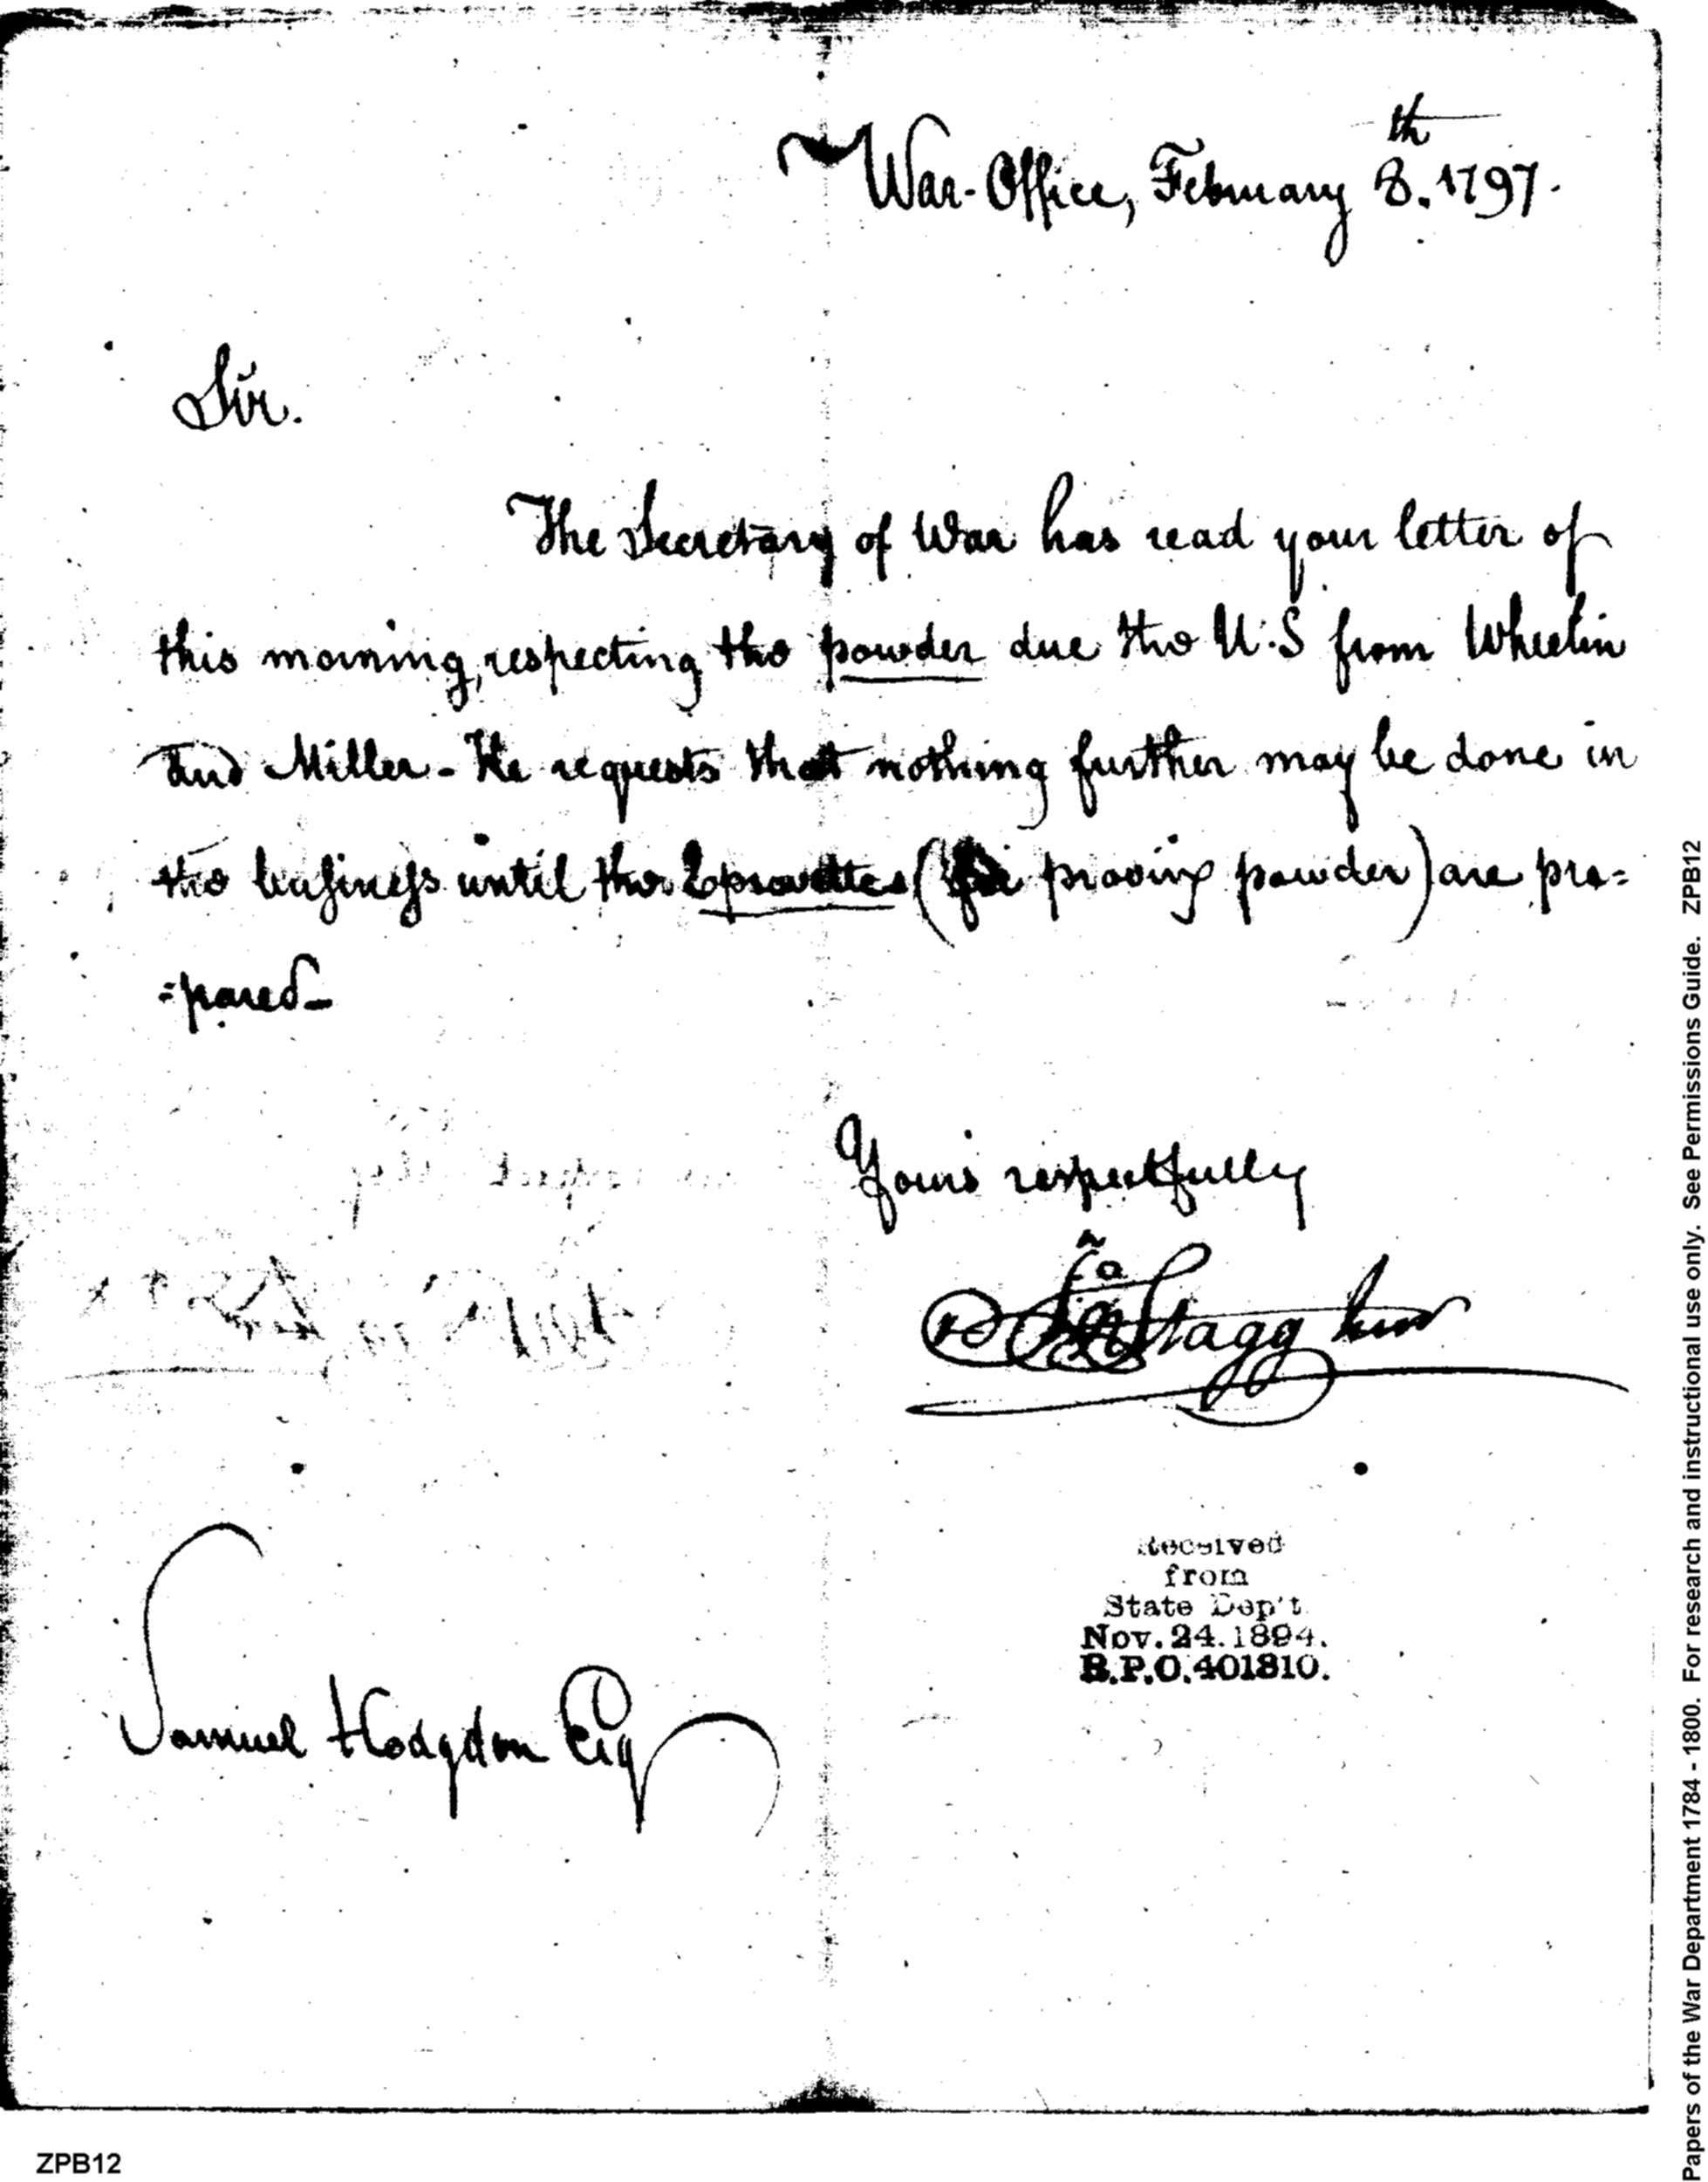 War-Office, February 8.th 1797.
Sir.
The Secretary of War has read your letter of
this morning, respecting the powder due the U.S from Wheelin
and Miller - He requests that nothing further may be done in
the business until the Eprovettes (for proving powder) are pre=
=pared_
Yours respectfully
Jno Stagg Junr
Received
from
State Dep't
Nov. 24. 1894.
R.P.O. 401810.
Samuel Hodgdon Esq
ZPB12
Papers of the War Department 1784 - 1800. For research and instructional use only. See Permissions Guide. ZPB12